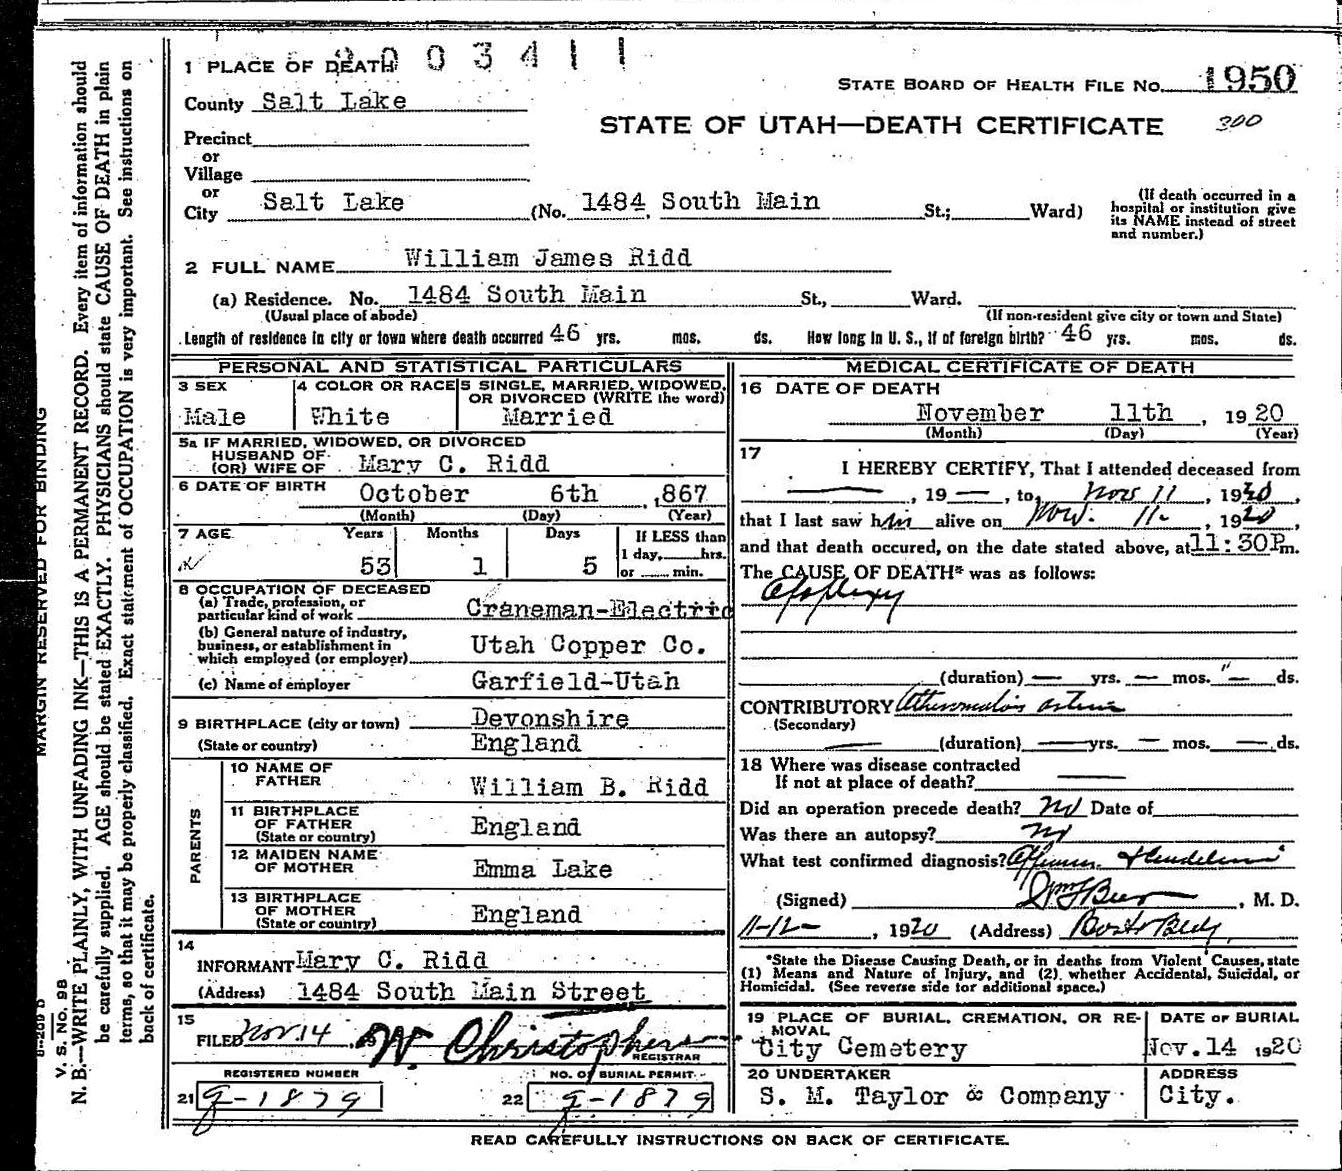 2003411
1 PLACE OF DEATH
STATE BOARD OF HEALTH FILE No. 1950
County Salt Lake
STATE OF UTAH—DEATH CERTIFICATE 300
Precinct
or
Village
or
City Salt Lake (No. 1484 South Main St.; Ward)
(If death occurred in a hospital or institution give its NAME instead of street and number.)
2 FULL NAME William James Ridd
(a) Residence. No. 1484 South Main St., Ward.
(Usual place of abode) (If non-resident give city or town and State)
Length of residence in city or town where death occurred 46 yrs. mos. ds. How long in U. S., if of foreign birth? 46 yrs. mos. ds.
PERSONAL AND STATISTICAL PARTICULARS
3 SEX 4 COLOR OR RACE 5 SINGLE, MARRIED, WIDOWED, OR DIVORCED (WRITE the word)
Male White Married
5a IF MARRIED, WIDOWED, OR DIVORCED
HUSBAND OF
(OR) WIFE OF Mary C. Ridd
6 DATE OF BIRTH October 6th ,867
(Month) (Day) (Year)
7 AGE Years Months Days If LESS than
1 day, hrs.
53 1 5 or min.
8 OCCUPATION OF DECEASED
(a) Trade, profession, or
particular kind of work Craneman-Electric
(b) General nature of industry,
business, or establishment in
which employed (or employer) Utah Copper Co.
(c) Name of employer Garfield-Utah
9 BIRTHPLACE (city or town) Devonshire
(State or country) England
PARENTS
10 NAME OF
FATHER William B. Ridd
11 BIRTHPLACE
OF FATHER
(State or country) England
12 MAIDEN NAME
OF MOTHER Emma Lake
13 BIRTHPLACE
OF MOTHER
(State or country) England
14
INFORMANT Mary C. Ridd
(Address) 1484 South Main Street
15
FILED Nov. 14 W Christophers
REGISTRAR
REGISTERED NUMBER NO. OF BURIAL PERMIT
21 g-1879 22 g-1879
MEDICAL CERTIFICATE OF DEATH
16 DATE OF DEATH
November 11th, 1920
(Month) (Day) (Year)
17
I HEREBY CERTIFY, That I attended deceased from
—, 19 —, to Nov 11, 1920,
that I last saw him alive on Nov. 11-, 1920,
and that death occured, on the date stated above, at 11:30P m.
The CAUSE OF DEATH* was as follows:
Apoplexy
(duration) — yrs. — mos. — ds.
CONTRIBUTORY Atheromatous arteries
(Secondary)
— (duration) — yrs. — mos. — ds.
18 Where was disease contracted
If not at place of death? —
Did an operation precede death? No Date of
Was there an autopsy? No
What test confirmed diagnosis?
(Signed) Wm F Beer, M. D.
11-12-, 1920 (Address) Bosto Bldg
*State the Disease Causing Death, or in deaths from Violent Causes, state
(1) Means and Nature of Injury, and (2) whether Accidental, Suicidal, or
Homicidal. (See reverse side for additional space.)
19 PLACE OF BURIAL, CREMATION, OR REMOVAL DATE OF BURIAL
City Cemetery Nov. 14 1920
20 UNDERTAKER ADDRESS
S. M. Taylor & Company City.
READ CAREFULLY INSTRUCTIONS ON BACK OF CERTIFICATE.
MARGIN RESERVED FOR BINDING
V. S. No. 9B
N. B.—WRITE PLAINLY, WITH UNFADING INK—THIS IS A PERMANENT RECORD. Every item of information should
be carefully supplied. AGE should be stated EXACTLY. PHYSICIANS should state CAUSE OF DEATH in plain
terms, so that it may be properly classified. Exact statement of OCCUPATION is very important. See instructions on
back of certificate.